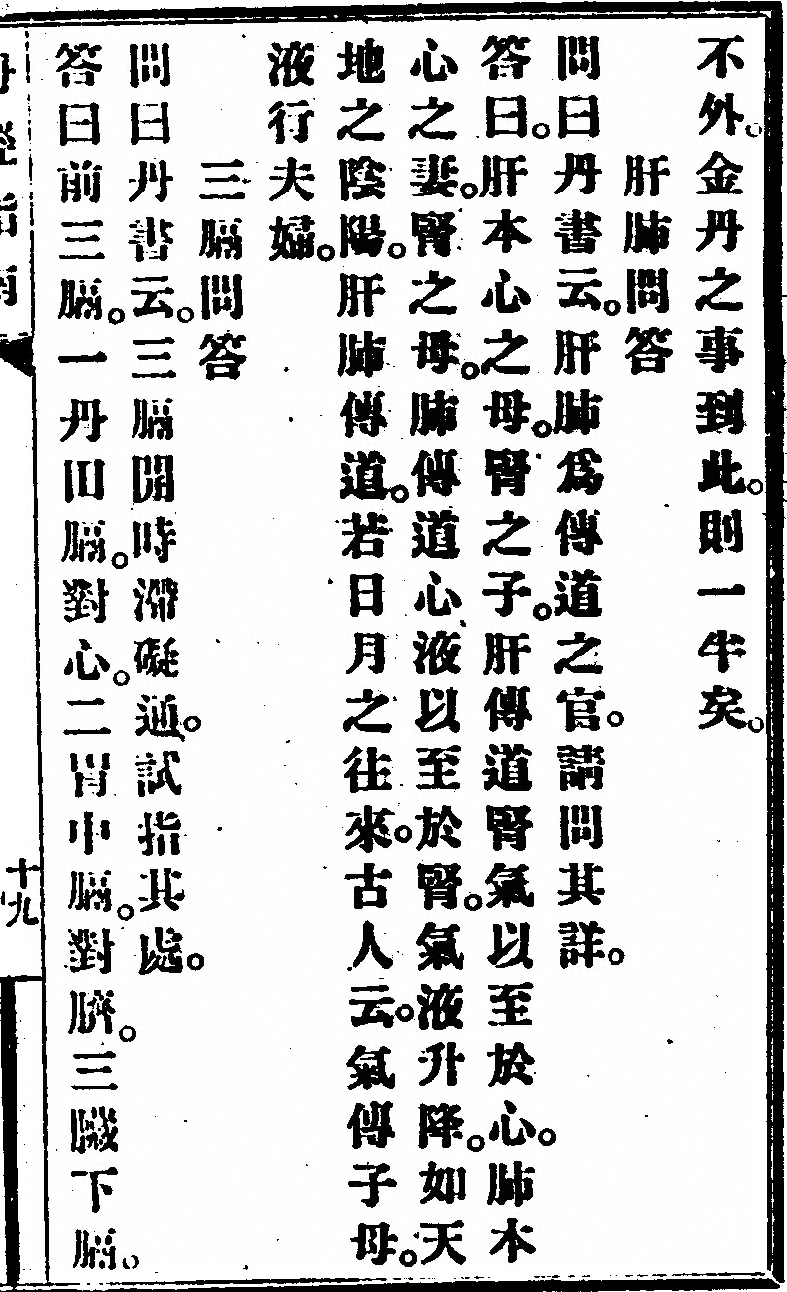 不外。金丹之事到此。則一半矣。
肝肺問答
問曰丹書云。肝肺為傳道之官。請問其詳。
答曰。肝本心之母。腎之子。肝傳道腎氣以至於心。肺本
心之妻。腎之母。肺傳道心液以至於腎。氣液升降。如天
地之陰陽。肝肺傳道。若日月之往來。古人云。氣傳子母。
液行夫婦。
三膈問答
問曰丹書云。三膈開時滯礙通。試指其處。
答曰前三膈。一丹田膈。對心。二胃中膈。對臍。三臟下膈。
十九